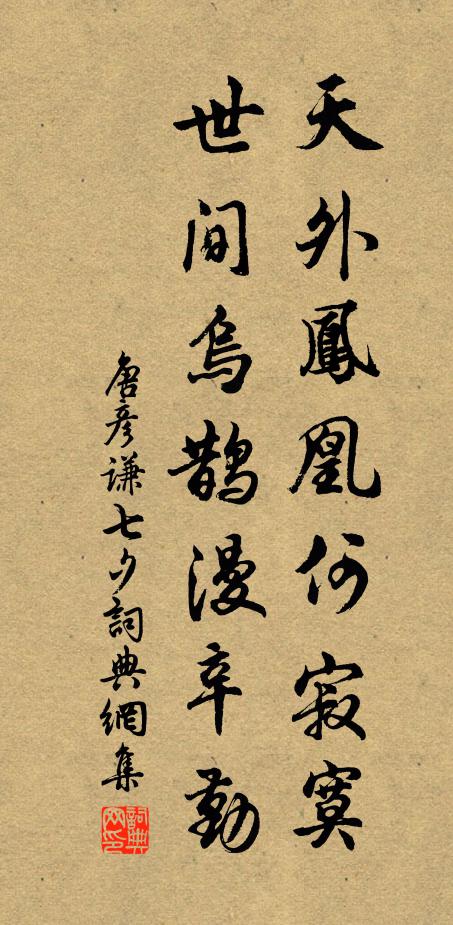 天外鳳凰何寂寞
世間烏鵲漫辛勤
唐彥謙七夕詞典網集
詞典網印